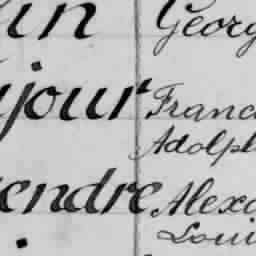 in Georg
jour Franc
Adolph
endre Alexa
Loui